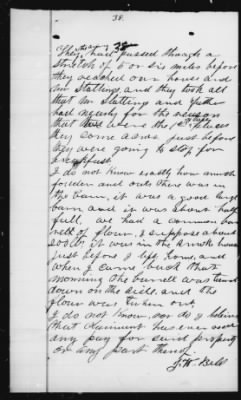 38.
They had passed through a
stretch of 5 or six miles before
they reached our house and
Mr Stallings, and they took all
that Mr Stallings and father
had nearly for the reason
that the first places
they come across just before
they were going to stop for
breakfast.
I do not know exactly how much
fodder and oats there was in
the barn, it was a good large
barn and it was about half
full, we had a common bar
rell of flour, I suppose about
200 lbs it was in the smoke house
just before I left home, and
when I came back that
morning the barrell was turned
down on the sill, and the
flour was taken out,
I do not know, nor do I believe
that claimant has ever recd
any pay for said property
or any part thereof
J. W. Bell